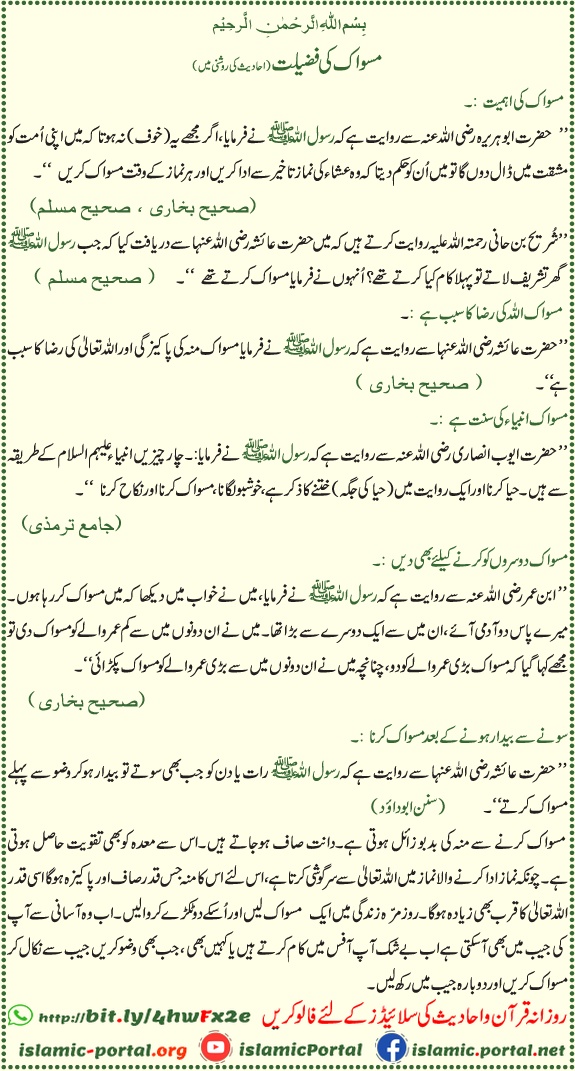 بِسْمِ اللهِ الرَّحْمٰنِ الرَّحِيْمِ
مسواک کی فضیلت (احادیث کی روشنی میں)
مسواک کی اہمیت :۔
’’ حضرت ابو ہریرہ رضی اللہ عنہ سے روایت ہے کہ رسول اللہ ﷺ نے فرمایا، اگر مجھے یہ (خوف) نہ ہوتا کہ میں اپنی اُمت کو
مشقت میں ڈال دوں گا تو میں اُن کو حکم دیتا کہ وہ عشاء کی نماز تاخیر سے ادا کریں اور ہر نماز کے وقت مسواک کریں ‘‘۔
(صحیح بخاری ، صحیح مسلم)
’’شُریح بن حانی رحمتہ اللہ علیہ روایت کرتے ہیں کہ میں حضرت عائشہ رضی اللہ عنہا سے دریافت کیا کہ جب رسول اللہ ﷺ
گھر تشریف لاتے تو پہلا کام کیا کرتے تھے؟ اُنہوں نے فرمایا مسواک کرتے تھے ‘‘۔ ( صحیح مسلم )
مسواک اللہ کی رضا کا سبب ہے :۔
’’ حضرت عائشہ رضی اللہ عنہا سے روایت ہے کہ رسول اللہ ﷺ نے فرمایا مسواک منہ کی پاکیزگی اور اللہ تعالیٰ کی رضا کا سبب
ہے‘‘۔ ( صحیح بخاری )
مسواک انبیاء کی سنت ہے :۔
’’ حضرت ایوب انصاری رضی اللہ عنہ سے روایت ہے کہ رسول اللہ ﷺ نے فرمایا:۔ چار چیزیں انبیاء علیہم السلام کے طریقہ
سے ہیں۔ حیا کرنا اور ایک روایت میں (حیا کی جگہ) ختنے کا ذکر ہے، خوشبو لگانا، مسواک کرنا اور نکاح کرنا ‘‘۔
(جامع ترمذی)
مسواک دوسروں کو کرنے کیلئے بھی دیں :۔
’’ ابن عمر رضی اللہ عنہ سے روایت ہے کہ رسول اللہ ﷺ نے فرمایا، میں نے خواب میں دیکھا کہ میں مسواک کر رہا ہوں۔
میرے پاس دو آدمی آئے، ان میں سے ایک دوسرے سے بڑا تھا۔ میں نے ان دونوں میں سے کم عمر والے کو مسواک دی تو
مجھے کہا گیا کہ مسواک بڑی عمر والے کو دو، چنانچہ میں نے ان دونوں میں سے بڑی عمر والے کو مسواک پکڑائی‘‘۔
(صحیح بخاری)
سونے سے بیدار ہونے کے بعد مسواک کرنا :۔
’’ حضرت عائشہ رضی اللہ عنہا سے روایت ہے کہ رسول اللہ ﷺ رات یا دن کو جب بھی سوتے تو بیدار ہو کر وضو سے پہلے
مسواک کرتے‘‘۔ (سنن ابو داؤد)
مسواک کرنے سے منہ کی بدبو زائل ہوتی ہے۔ دانت صاف ہو جاتے ہیں۔ اس سے معدہ کو بھی تقویت حاصل ہوتی
ہے۔ چونکہ نماز ادا کرنے والا نماز میں اللہ تعالیٰ سے سرگوشی کرتا ہے، اس لئے اس کا منہ جس قدر صاف اور پاکیزہ ہوگا اسی قدر
اللہ تعالیٰ کا قرب بھی زیادہ ہوگا۔ روزمرّہ زندگی میں ایک مسواک لیں اور اُسکے دو ٹکڑے کروالیں۔ اب وہ آسانی سے آپ
کی جیب میں بھی آسکتی ہے اب بے شک آپ آفس میں کام کرتے ہیں یا کہیں بھی ، جب بھی وضو کریں جیب سے نکال کر
مسواک کریں اور دوبارہ جیب میں رکھ لیں۔
روزانہ قرآن و احادیث کی سلائیڈز کے لئے فالو کریں http://bit.ly/4hwFx2e
islamic-portal.org islamicPortal islamic.portal.net